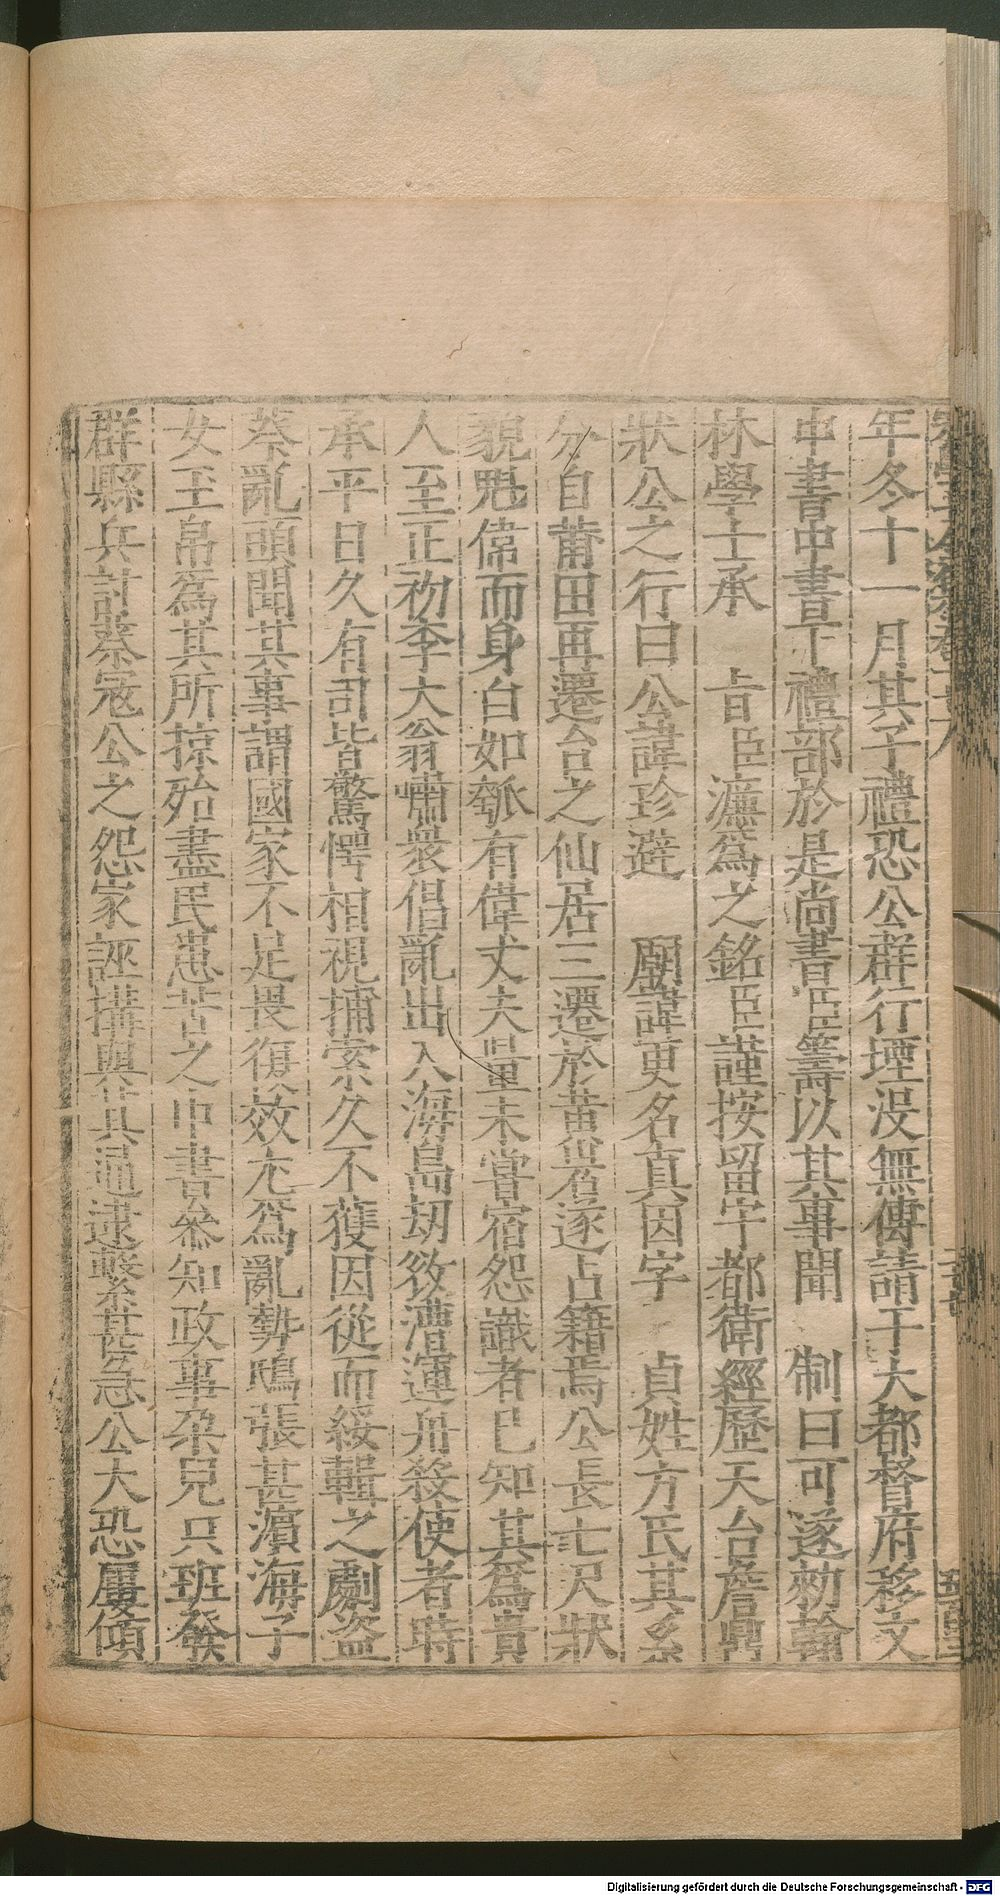 年冬十一月其子禮恐公群行堙没無傳請于大都督府移文
中書中書下禮部於是尚書臣籌以其事聞　制曰可遂勑翰
林學士承　旨臣濂爲之銘臣謹按留守都衛經歷天台詹鼎
狀公之行曰公諱珍避　廟諱更名真因字　貞姓方氏其系
分自莆田再遷台之仙居三遷於黄巖遂占籍焉公長七尺狀
貌魁偉而身白如瓠有偉丈夫量未嘗宿怨識者已知其爲貴
人至正初李大翁嘯衆倡亂出入海島刼敓漕運舟殺使者時
承平日久有司皆驚愕相視捕索久不獲因從而綏輯之劇盗
蔡亂頭聞其事謂國家不足畏復效尤爲亂勢鴟張甚濵海子
女玉帛爲其所掠殆盡民患苦之中書叅知政事朶兒只班發
群縣兵討蔡寇公之怨家誣搆與其逼逮繫甚急公大恐屢傾